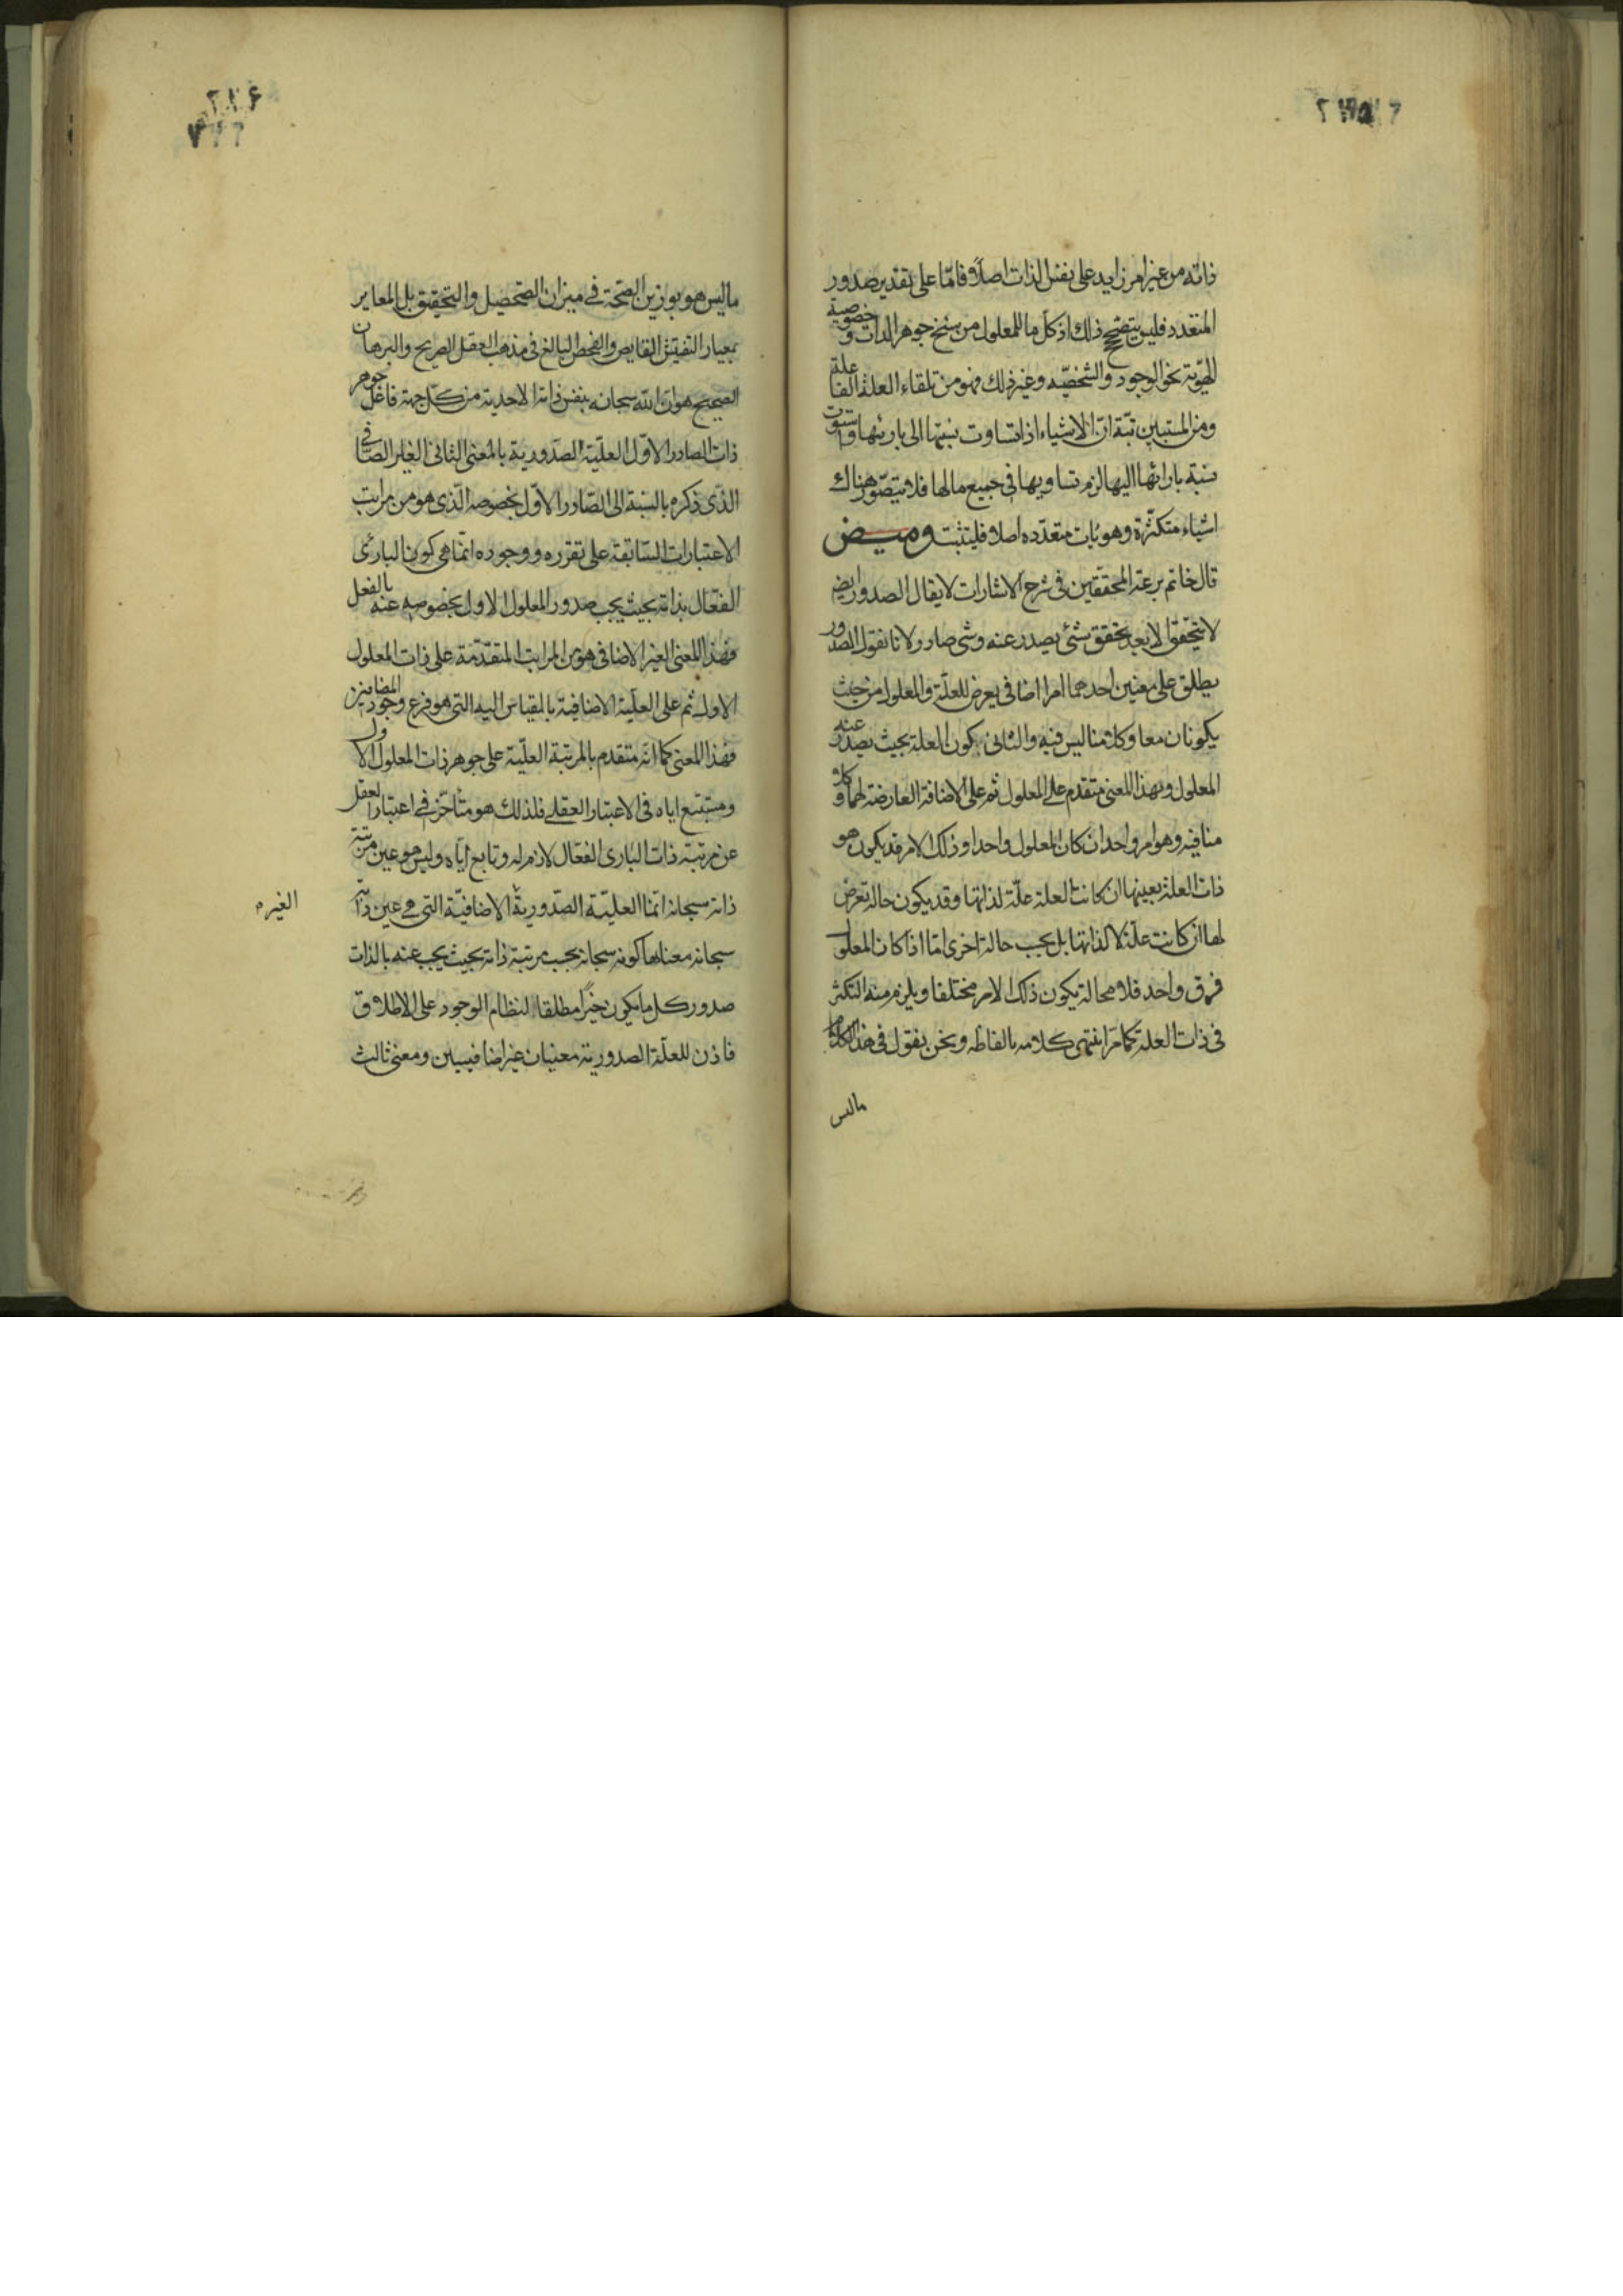 ذاته من غير امر زايد على نفس الذات اصلا و فامّا على تقدير صدور
المتعدد فليس يتصحح ذلك اذ كل ما للمعلول من سنخ جوهر الذات و خصوصية
الهويّة نحو الوجود والشخصيّه وغير ذلك فهو من تلقاء العلة الفاعلة
ومن المستبين تبّة انّ الاشياء اذا تساوت نسبتها الى بارئها واستوت
نسبة بارائها اليها لزم تساويها في جميع مالها فلا يتصّور هناك
اشياء متكثّرة وهويّات متعدّده اصلا فليتثبت وميض
قال خاتم برعة المحققين فى شرح الاشارات لا يقال الصدور ايضا
لا يتحقّق الا بعد تحقق شئ يصدر عنه وشئ صادر لانا نقول الصدور
يطلق على معنيين احدهما امر اضافى يعرض للعلّة والمعلول من حيث
يكونان معا وكلامنا ليس فيه والثانى كون العلة بحيث يصدر عنه
المعلول وبهذا المعنى متقدم على المعلول ثم على الاضافة العارضة لهما وكلا
منا فيه وهو امر واحد ان كان المعلول واحدا وذلك الامر قد يكون هو
ذات العلة بعينها ان كانت العلة علّة لذاتها وقد يكون حالة تعرض
لها ان كانت علّة لا لذاتها بل بحسب حالة اخرى امّا اذا كان المعلول
فوق واحد فلا محالة يكون ذلك الامر مختلفا ويلزم منه التكثر
فى ذات العلة كما مرّ انتهى كلامه بالفاظه ونحن نقول فى هذا الكلام
ماليس
ماليس هو بوزين الصحّة فى ميزان التحصيل والتحقيق بل المعاير
بمعيار التفتيش الفايص والفحص البالغ فى مذهب العقل الصريح والبرهان
الصحيح هو ان الله سبحانه بنفس ذاته الاحدية من كلّ جهة فاعل جوهر
ذات الصادر الاوّل العلّية الصّدورية بالمعنى الثانى الغير الاضافى
الذى ذكره بالنسبة الى الصّادر الاوّل بخصوصه الّذى هو من مراتب
الاعتبارات السّابقة على تقرره ووجوده انّما هى كون البارئ
الفعّال بذاته بحيث يجب صدور المعلول الاول بخصوصه عنه بالفعل
فهذا المعنى الغير الاضافى هو من المراتب المتقدّمة على ذات المعلول
الاول ثم على العلّية الاضافية بالمقياس اليه التى هو فرع وجود المضافين
فهذا المعنى كما انّه متقدم بالمرتبة العلّية على جوهر ذات المعلول الاول
ومستتبع اياه فى الاعتبار العقلى فلذلك هو متأخّر فى اعتبار العقل
عن مرتبة ذات البارى الفعّال لازم له وتابع ايّاه وليس هو عين مرتبة
ذاته سبحانه انّما العليّة الصّدورية الاضافيّة التى هى عين ذاته
الغير
سبحانه معناها كونه سبحانه بحسب مرتبة ذاته بحيث يجب عنه بالذات
صدور كل ما يكون خيرًا مطلقا لنظام الوجود على الاطلاق
فاذن للعلّة الصدورية معنيان غير اضافيين ومعنى ثالث